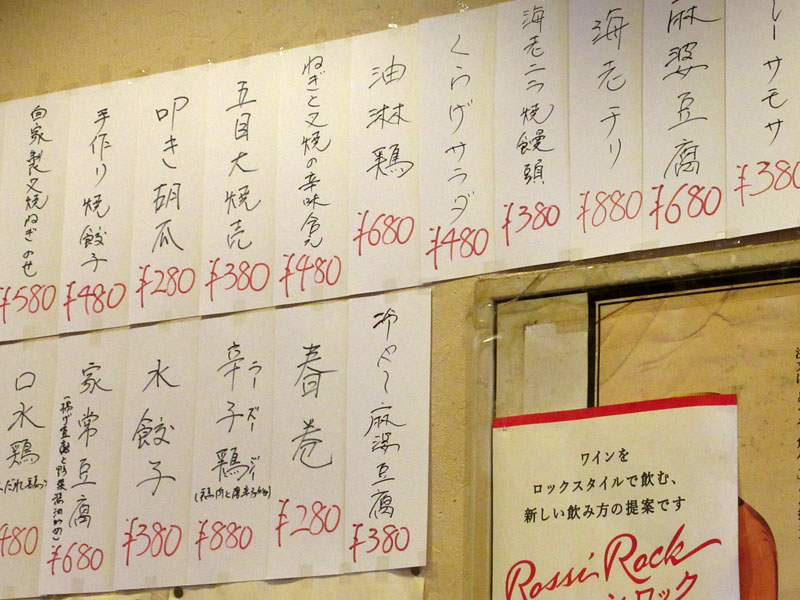 ーサモサ
¥380
麻婆豆腐
¥680
海老チリ
¥880
海老ニラ焼饅頭
¥380
くらげサラダ
¥480
油淋鶏
¥680
ねぎと叉焼の辛味和え
¥480
五目大焼売
¥380
叩き胡瓜
¥280
手作り焼餃子
¥480
自家製叉焼ねぎのせ
¥580
冷やし麻婆豆腐
¥380
春巻
¥280
辛子鶏
ラーズージー
¥880
水餃子
¥380
家常豆腐
¥680
口水鶏
だれ鶏)
480
ワインを
ロックスタイルで飲む、
新しい飲み方の提案です
Rossi Rock
ンロック